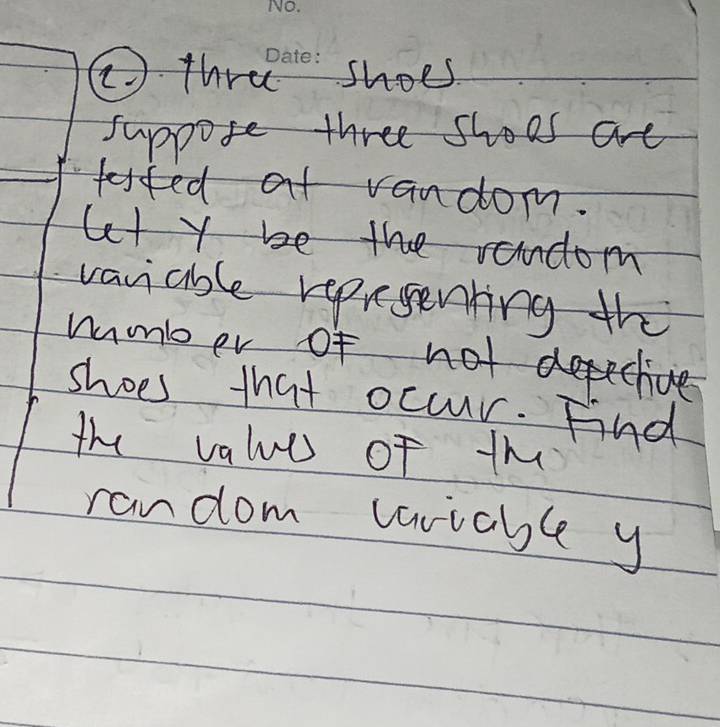 No.
Date:
2. three shoes
suppose three shoes are
tested at random.
let Y be the random
variable representing the
number OF not defective
shoes that occur. Find
the values OF the
random variable y